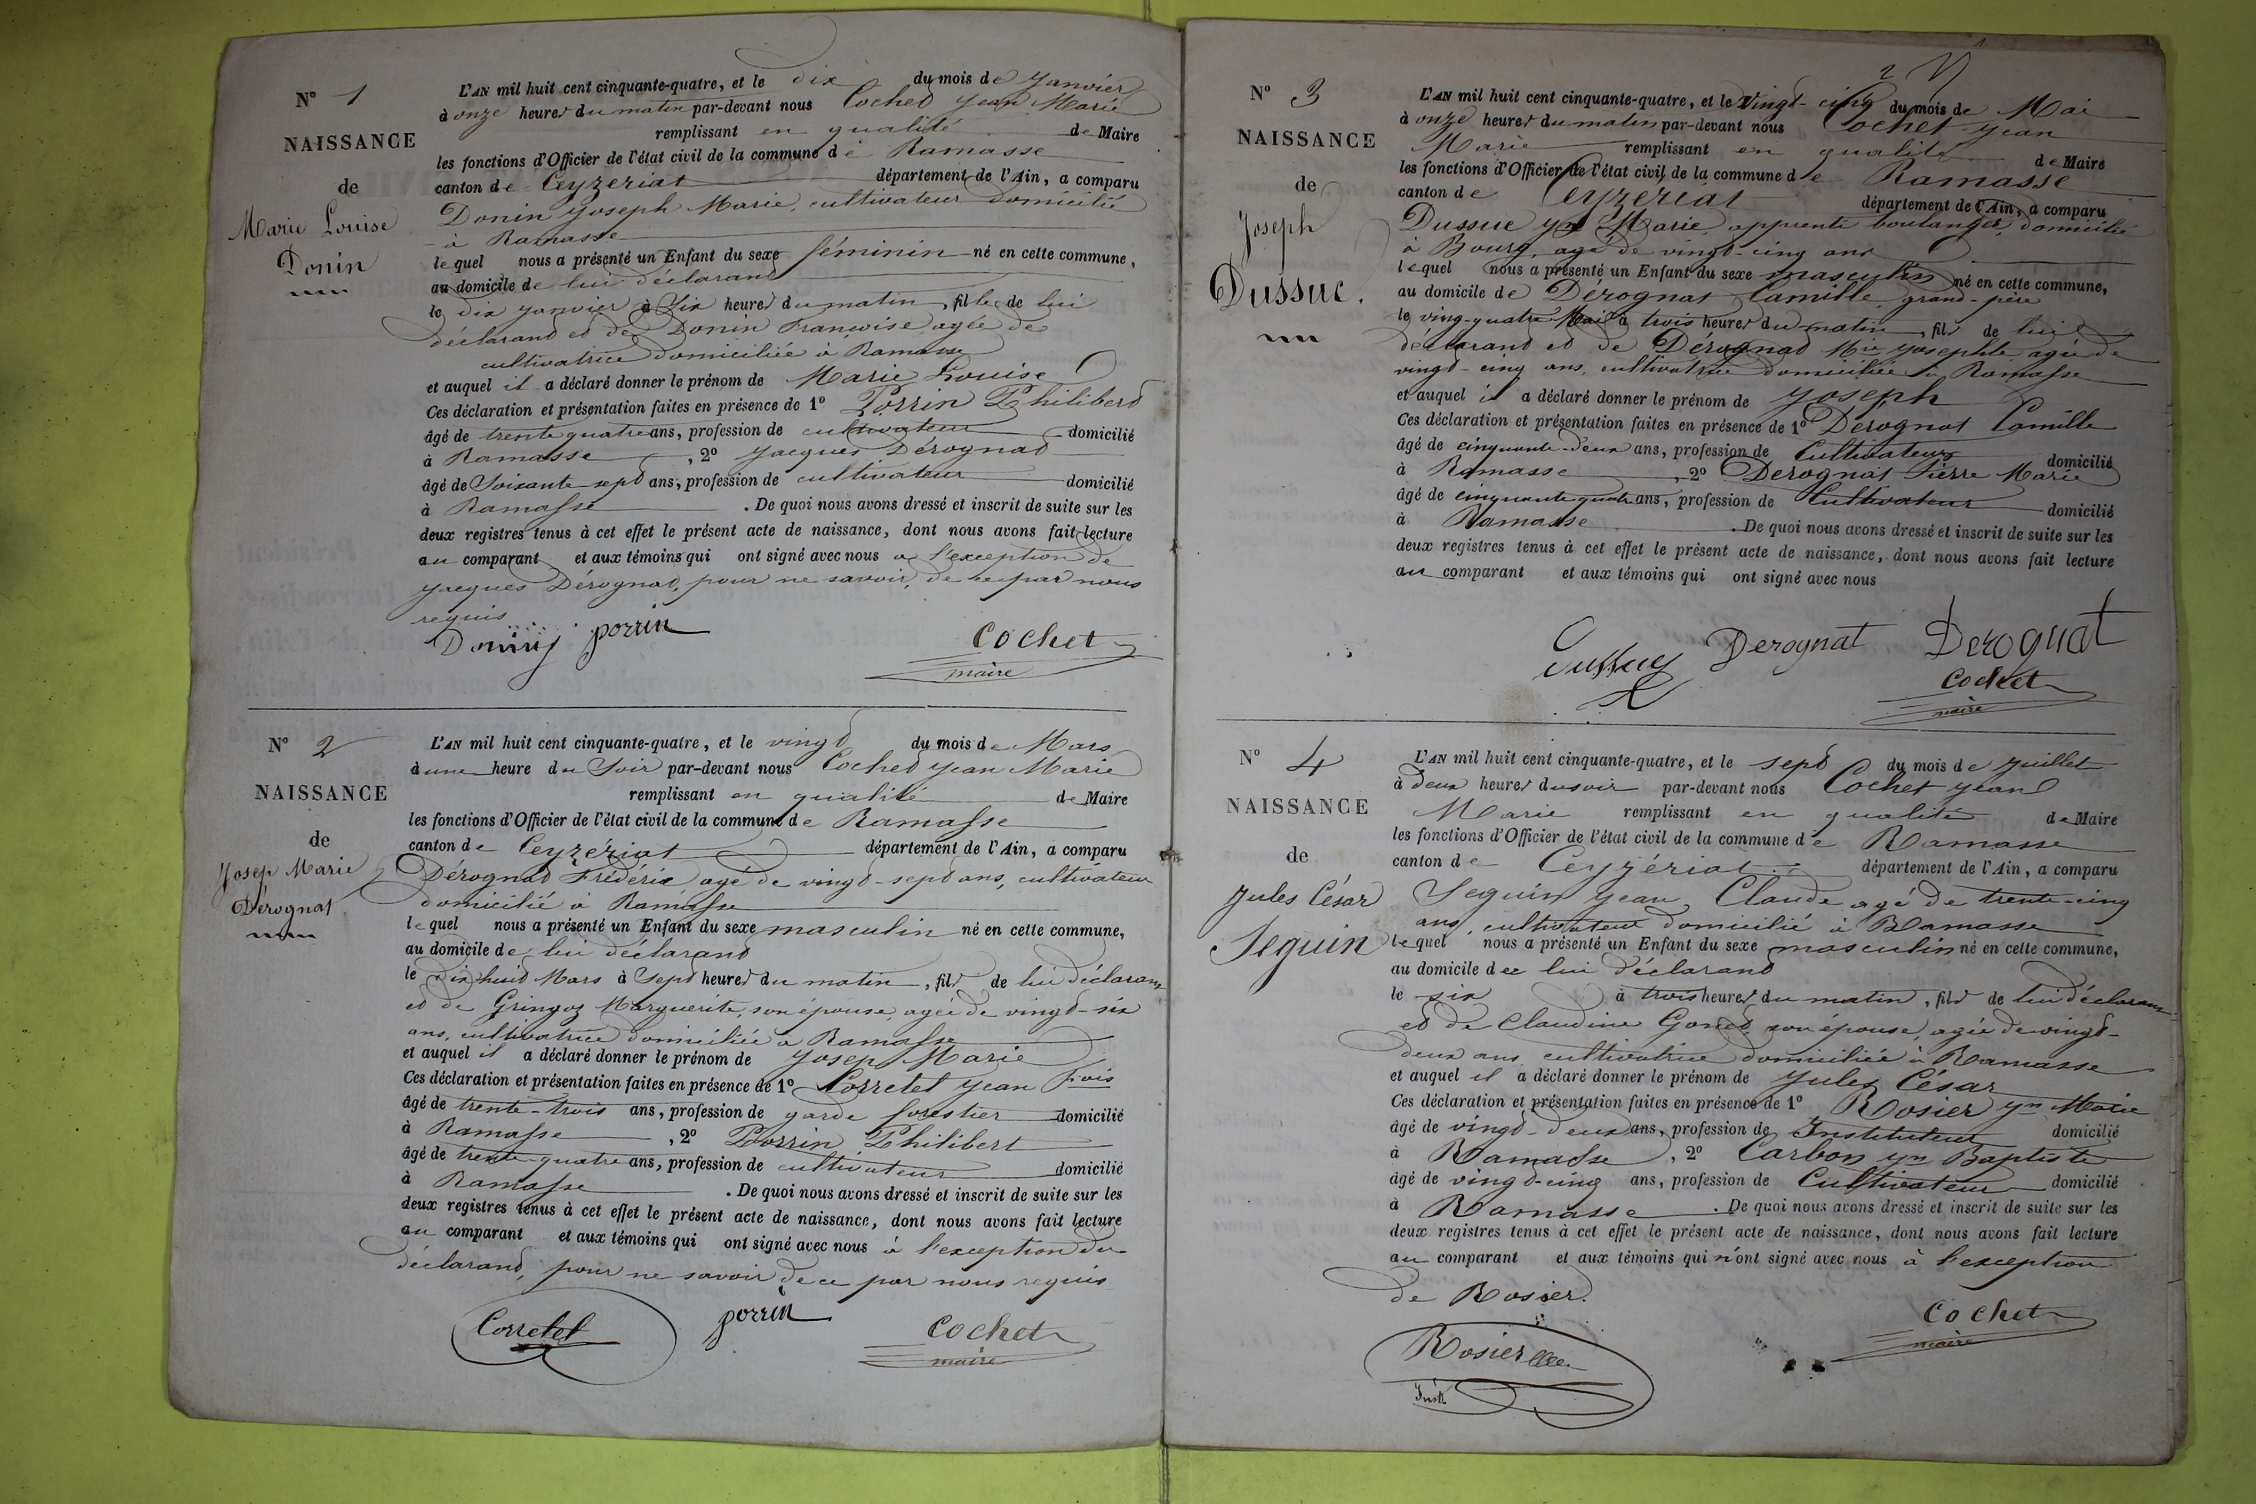 N° 1
NAISSANCE
de
Marie Louise
Donin
L'AN mil huit cent cinquante-quatre, et le dix du mois de Janvier
à onze heures du matin par-devant nous Cochet Jean Marie
remplissant en qualité de Maire
les fonctions d'Officier de l'état civil de la commune de Ramasse
canton de Ceyzeriat département de l'Ain, a comparu
Donin Joseph Marie, cultivateur domicilié
à Ramasse
lequel nous a présenté un Enfant du sexe féminin né en cette commune,
au domicile de lui déclarant
le dix Janvier à Six heures du matin, fille de lui
déclarant et de Donin Francoise agée de
cultivatrice domiciliée à Ramasse
et auquel il a déclaré donner le prénom de Marie Louise
Ces déclaration et présentation faites en présence de 1° Porrin Philibert
âgé de trente quatre ans, profession de cultivateur domicilié
à Ramasse, 2° Jacques Dérognat
âgé de Soixante sept ans, profession de cultivateur domicilié
à Ramasse. De quoi nous avons dressé et inscrit de suite sur les
deux registres tenus à cet effet le présent acte de naissance, dont nous avons fait lecture
au comparant et aux témoins qui ont signé avec nous à l'exception de
Jacques Dérognat, pour ne savoir, de ce par nous
requis
porrin Cochet
maire
N° 2
NAISSANCE
de
Josep Marie
Dérognat
L'AN mil huit cent cinquante-quatre, et le vingt du mois de Mars
à une heure du Soir par-devant nous Cochet Jean Marie
remplissant en qualité de Maire
les fonctions d'Officier de l'état civil de la commune de Ramasse
canton de Ceyzériat département de l'Ain, a comparu
Dérognat Fréderic agé de vingt-sept ans, cultivateur
domicilié à Ramasse
lequel nous a présenté un Enfant du sexe masculin né en cette commune,
au domicile de lui déclarant
le dix huit Mars à Sept heures du matin, fils de lui déclarant
et de Gringoz Marguerite, son épouse, agée de vingt-six
ans, cultivatrice domiciliée à Ramasse
et auquel il a déclaré donner le prénom de Josep Marie
Ces déclaration et présentation faites en présence de 1° Corretel Jean Fcois
âgé de trente-trois ans, profession de garde forestier domicilié
à Ramasse, 2° Porrin Philibert
âgé de trente-quatre ans, profession de cultivateur domicilié
à Ramasse. De quoi nous avons dressé et inscrit de suite sur les
deux registres tenus à cet effet le présent acte de naissance, dont nous avons fait lecture
au comparant et aux témoins qui ont signé avec nous à l'exception du
déclarant, pour ne savoir de ce par nous requis
Corretel porrin Cochet
maire
2
N° 3
NAISSANCE
de
Joseph
Dussuc.
L'AN mil huit cent cinquante-quatre, et le Vingt-cinq du mois de Mai
à onze heures du matin par-devant nous Cochet Jean
Marie remplissant en qualité de Maire
les fonctions d'Officier de l'état civil de la commune de Ramasse
canton de Ceyzeriat département de l'Ain, a comparu
Dussuc Jn Marie apprenti boulanger, domicilié
à Bourg, agé de vingt-cinq ans
lequel nous a présenté un Enfant du sexe masculin né en cette commune,
au domicile de Dérognat Camille grand-père
le vingt-quatre Mai à trois heures du matin, fils de lui
déclarant et de Dérognat Mie Josephte agée de
vingt-cinq ans, cultivatrice domiciliée à Ramasse
et auquel il a déclaré donner le prénom de Joseph
Ces déclaration et présentation faites en présence de 1° Dérognat Camille
âgé de cinquante-deux ans, profession de Cultivateur domicilié
à Ramasse, 2° Derognat Pierre Marie
âgé de cinquante quatre ans, profession de Cultivateur domicilié
à Ramasse. De quoi nous avons dressé et inscrit de suite sur les
deux registres tenus à cet effet le présent acte de naissance, dont nous avons fait lecture
au comparant et aux témoins qui ont signé avec nous
Dussuc Derognat Derognat
Cochet
maire
N° 4
NAISSANCE
de
Jules César
Seguin
L'AN mil huit cent cinquante-quatre, et le sept du mois de Juillet
à deux heures du soir par-devant nous Cochet Jean
Marie remplissant en qualité de Maire
les fonctions d'Officier de l'état civil de la commune de Ramasse
canton de Ceyzériat département de l'Ain, a comparu
Seguin Jean Claude agé de trente-cinq
ans, cultivateur domicilié à Ramasse
lequel nous a présenté un Enfant du sexe masculin né en cette commune,
au domicile de lui déclarant
le six à trois heures du matin, fils de lui déclarant
et de Claudine Gonod son épouse, agée de vingt-
deux ans cultivatrice domiciliée à Ramasse
et auquel il a déclaré donner le prénom de Jules César
Ces déclaration et présentation faites en présence de 1° Rosier Jn Marie
âgé de vingt-deux ans, profession de Instituteur domicilié
à Ramasse, 2° Carbon Jn Baptiste
âgé de vingt-cinq ans, profession de Cultivateur domicilié
à Ramasse. De quoi nous avons dressé et inscrit de suite sur les
deux registres tenus à cet effet le présent acte de naissance, dont nous avons fait lecture
au comparant et aux témoins qui n'ont signé avec nous à l'exception
de Rosier.
Cochet
maire
Rosier
Inst